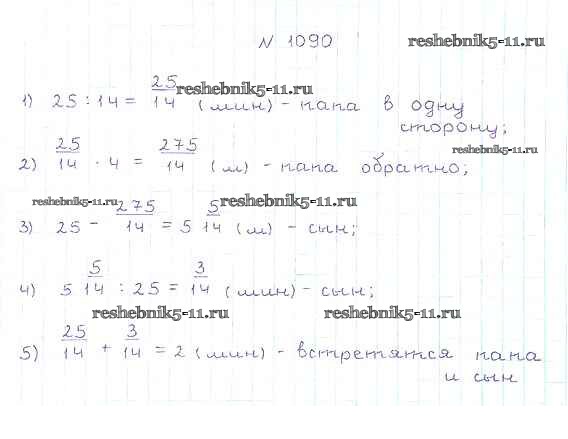 N 1090 reshebnik5-11.ru
reshebnik5-11.ru
1) 25 : 14 = 25/14 (мин) - папа в одну
сторону;
reshebnik5-11.ru
2) 25/14 · 4 = 275/14 (м) - папа обратно;
reshebnik5-11.ru reshebnik5-11.ru
3) 25 - 275/14 = 5 5/14 (м) - сын;
4) 5 5/14 : 25 = 3/14 (мин) - сын;
reshebnik5-11.ru reshebnik5-11.ru
5) 25/14 + 3/14 = 2 (мин) - встретятся папа
и сын